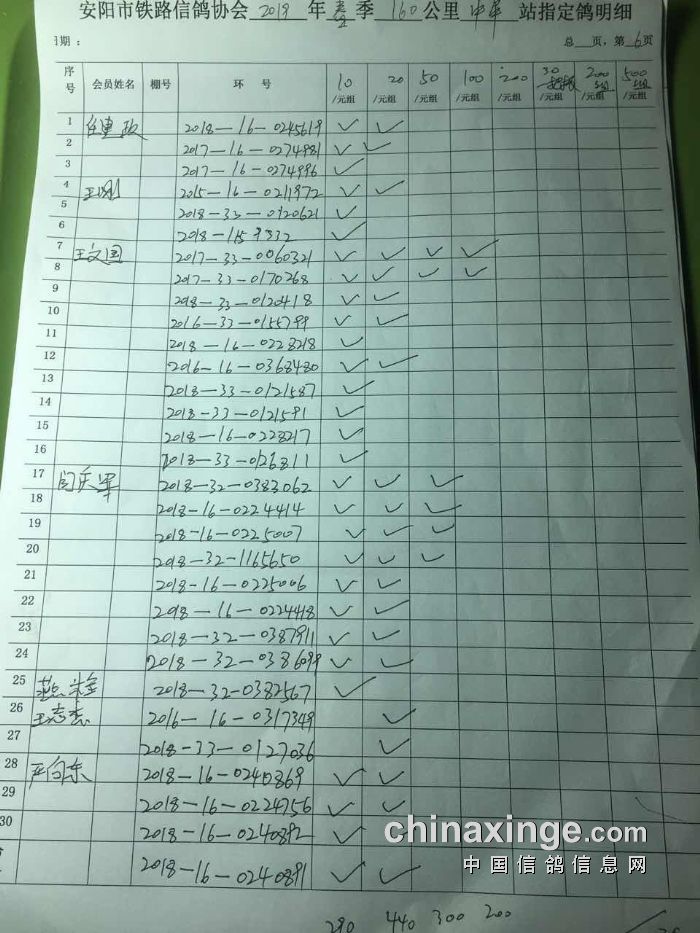 安阳市铁路信鸽协会 2019 年 春 季 160 公里 中华 站指定鸽明细
期： 总 页，第 6 页
序号 会员姓名 棚号 环 号 10/元组 20/元组 50/元组 100/元组 200/元组 30/元组 200/元组 500/元组
1 2018-16-0245619 ✓ ✓
2 2017-16-0274981 ✓ ✓
3 2017-16-0274996 ✓
4 王刚 2015-16-0211972 ✓ ✓
5 2018-33-0120621 ✓
6 ✓
7 王文国 2017-33-0060321 ✓ ✓ ✓ ✓
8 2017-33-0170268 ✓ ✓ ✓ ✓
9 2018-33-0120418 ✓ ✓
10 2016-33-0155799 ✓ ✓
11 2018-16-0228218 ✓
12 2016-16-0368480 ✓ ✓
13 2018-33-0121587 ✓
14 2018-33-0121591 ✓
15 2018-16-0228217 ✓
16 2018-33-0126811 ✓
17 闫庆军 2018-32-0383062 ✓ ✓ ✓
18 2018-16-0224414 ✓ ✓ ✓
19 2018-16-0225007 ✓ ✓ ✓
20 2018-32-1165650 ✓ ✓ ✓
21 2018-16-0225006 ✓ ✓
22 2018-16-0224418 ✓ ✓
23 2018-32-0387911 ✓ ✓
24 2018-32-0386099 ✓ ✓
25 2018-32-0382567 ✓
26 王志杰 2016-16-0317349 ✓
27 2018-33-0127036 ✓
28 严向东 2018-16-0240869 ✓ ✓
29 2018-16-0224756 ✓ ✓
30 2018-16-0240892 ✓ ✓
2018-16-0240891 ✓ ✓
290 440 300 200
chinaxinge.com
中国信鸽信息网